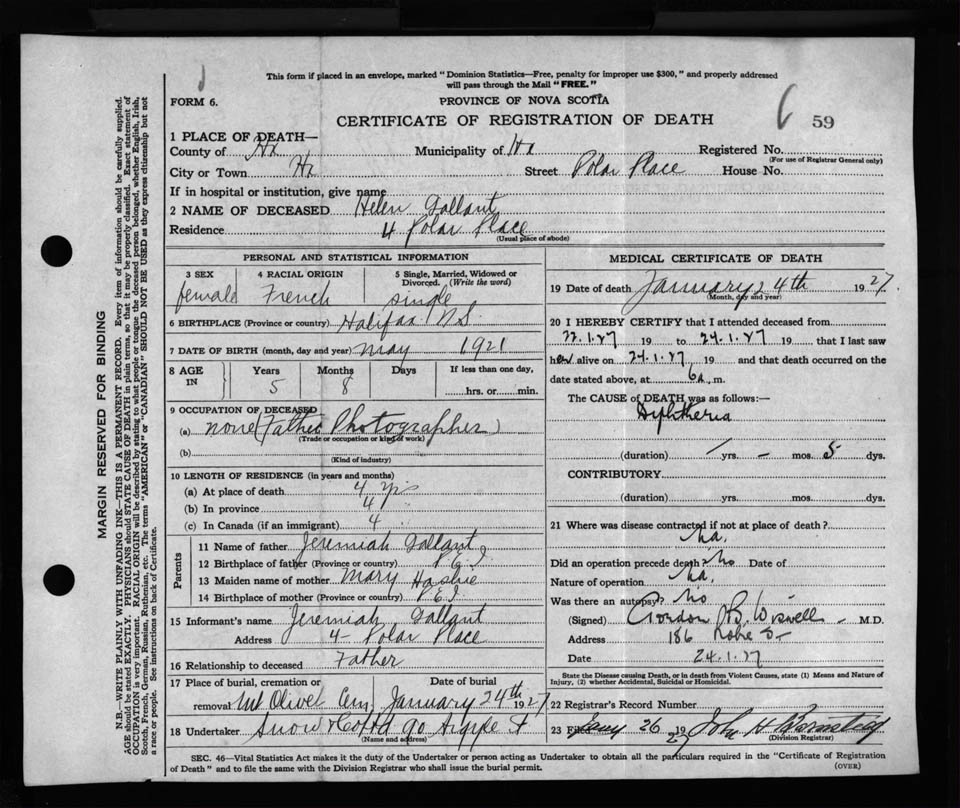 This form if placed in an envelope, marked "Dominion Statistics—Free, penalty for improper use $300," and properly addressed
will pass through the Mail "FREE."
FORM 6.
PROVINCE OF NOVA SCOTIA
CERTIFICATE OF REGISTRATION OF DEATH
59
1 PLACE OF DEATH—
County of Hx Municipality of Hx Registered No.
(For use of Registrar General only)
City or Town Hx Street Polar Place House No.
If in hospital or institution, give name
2 NAME OF DECEASED Helen Gallant
Residence 4 Polar Place
(Usual place of abode)
PERSONAL AND STATISTICAL INFORMATION
3 SEX 4 RACIAL ORIGIN 5 Single, Married, Widowed or
Divorced. (Write the word)
female French single
6 BIRTHPLACE (Province or country) Halifax N.S.
7 DATE OF BIRTH (month, day and year) May 1921
8 AGE IN Years Months Days If less than one day,
5 8 hrs. or min.
9 OCCUPATION OF DECEASED
(a) none (Father Photographer)
(Trade or occupation or kind of work)
(b)
(Kind of industry)
10 LENGTH OF RESIDENCE (in years and months)
(a) At place of death 4 yrs
(b) In province 4
(c) In Canada (if an immigrant) 4
Parents
11 Name of father Jeremiah Gallant
12 Birthplace of father (Province or country) P.E.I
13 Maiden name of mother Mary
14 Birthplace of mother (Province or country) P.E.I
15 Informant's name Jeremiah Gallant
Address 4 - Polar Place
16 Relationship to deceased Father
17 Place of burial, cremation or Date of burial
removal Mt Olivet Cem January 24th 1927
18 Undertaker Snow & Co Ltd 90 Argyle St
(Name and address)
MEDICAL CERTIFICATE OF DEATH
19 Date of death January 24th 1927.
(Month, day and year)
20 I HEREBY CERTIFY that I attended deceased from
22.1.27 19 to 24.1.27 19 that I last saw
her alive on 24.1.27 19 and that death occurred on the
date stated above, at 6 a. m.
The CAUSE OF DEATH was as follows:—
Diphtheria
(duration) / yrs. - mos. 5 dys.
CONTRIBUTORY
(duration) yrs. mos. dys.
21 Where was disease contracted if not at place of death?
Did an operation precede death? No Date of
Nature of operation
Was there an autopsy? No
(Signed) Gordon B. Wiswell M.D.
Address 186 Robie St
Date 24.1.27
State the Disease causing Death, or in death from Violent Causes, state (1) Means and Nature of
Injury, (2) whether Accidental, Suicidal or Homicidal.
22 Registrar's Record Number
23 Filed Jany 26 1927 John H
(Division Registrar)
SEC. 46—Vital Statistics Act makes it the duty of the Undertaker or person acting as Undertaker to obtain all the particulars required in the "Certificate of Registration
of Death" and to file the same with the Division Registrar who shall issue the burial permit.
(OVER)
MARGIN RESERVED FOR BINDING
N.B.—WRITE PLAINLY WITH UNFADING INK—THIS IS A PERMANENT RECORD. Every item of information should be carefully supplied.
AGE should be stated EXACTLY. PHYSICIANS should STATE CAUSE OF DEATH in plain terms so that it may be properly classified. Exact statement of
OCCUPATION is very important. RACIAL ORIGIN will be described by stating to what people or tongue the deceased person belonged, whether English, Irish,
Scotch, French, German, Russian, Ruthenian, etc. The terms "AMERICAN" or "CANADIAN" SHOULD NOT BE USED as they express citizenship but not
a race or people. See instructions on back of Certificate.